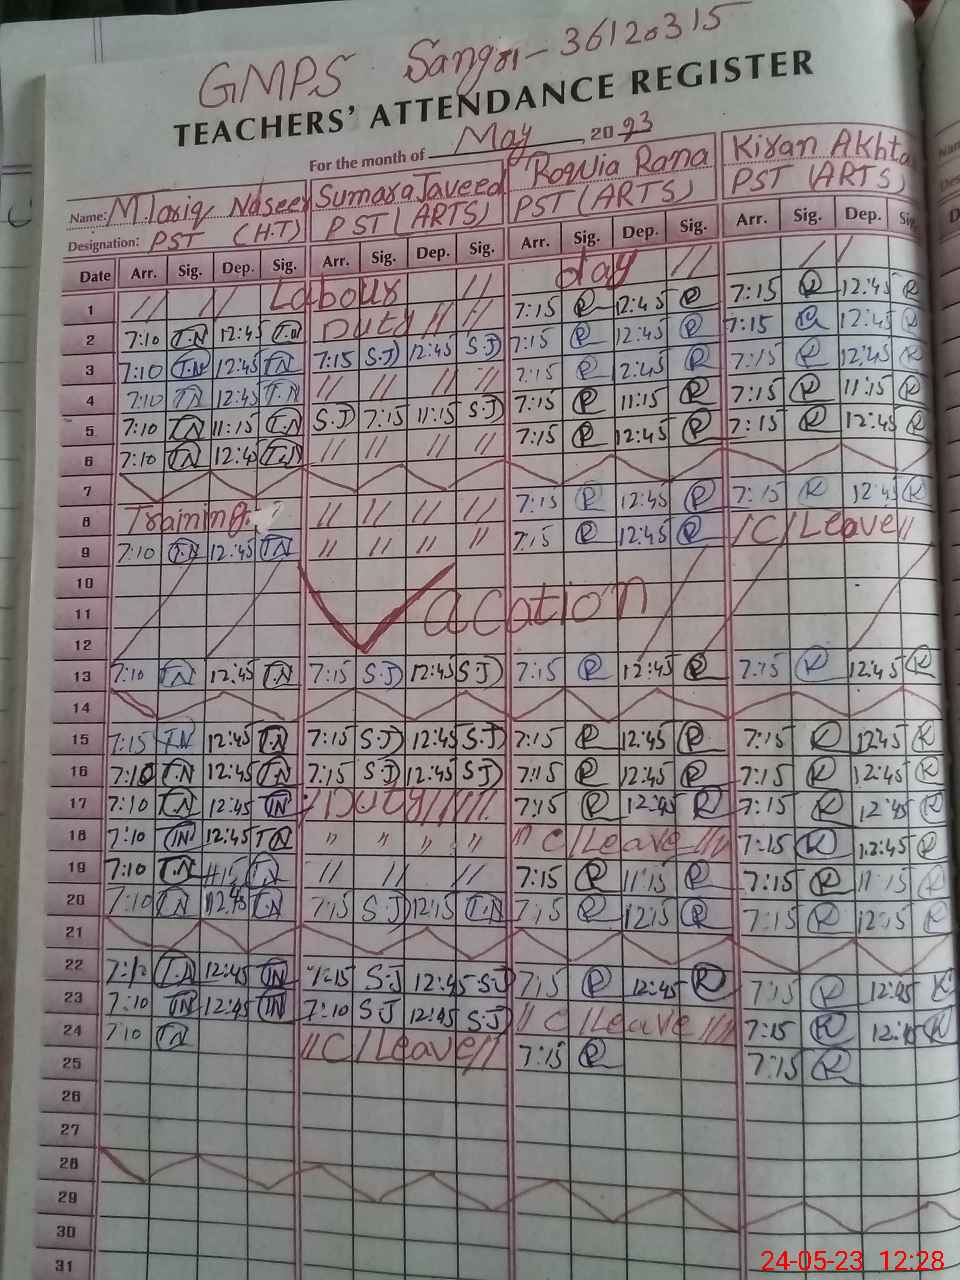 GMPS Sangri - 36120315
TEACHERS' ATTENDANCE REGISTER
For the month of May, 2023
Name: M.Tariq Naseer Sumara Javeed Roqia Rana Kiran Akhta
Designation: PST (H.T) PST (ARTS) PST (ARTS) PST (ARTS)
Date Arr. Sig. Dep. Sig. Arr. Sig. Dep. Sig. Arr. Sig. Dep. Sig. Arr. Sig. Dep. Sig.
1 // // Labour // day // //
2 7:10 T.N 12:45 T.N Duty // // 7:15 R 12:45 R 7:15 R 12:45 R
3 7:10 T.N 12:45 TN 7:15 S.J 12:45 S.J 7:15 R 12:45 R 7:15 R 12:45 R
4 7:10 TN 12:45 T.N // // // // 7:15 R 12:45 R 7:15 R 12:45 R
5 7:10 TN 11:15 T.N S.J 7:15 11:15 S.J 7:15 R 11:15 R 7:15 R 11:15 R
6 7:10 TN 12:40 T.N // // // // 7:15 R 12:45 R 7:15 R 12:45 R
7
8 Training // // // // 7:15 R 12:45 R 7:15 K 12:45 K
9 7:10 T.N 12:45 TN // // // // 7:15 R 12:45 R / C / Leave //
10
11 Vacation
12
13 7:10 TN 12:45 TN 7:15 S.J 12:45 S.J 7:15 R 12:45 R 7:15 K 12:45 K
14
15 7:15 TN 12:45 T.N 7:15 S.J 12:45 S.J 7:15 R 12:45 R 7:15 K 12:45 K
16 7:10 T.N 12:45 TN 7:15 S.J 12:45 S.J 7:15 R 12:45 R 7:15 K 12:45 K
17 7:10 TN 12:45 TN Duty ///// 7:15 R 12:45 R 7:15 K 12:45 K
18 7:10 TN 12:45 TN " " " " " C / Leave // 7:15 K 12:45 K
19 7:10 T.N 11:15 TN // // // 7:15 R 11:15 R 7:15 K 11:15 K
20 7:10 T.N 12:45 T.N 7:15 S.J 12:15 T.N 7:15 R 12:15 R 7:15 K 12:15 K
21
22 7:10 T.N 12:45 TN 7:15 S.J 12:45 S.J 7:15 R 12:45 R 7:15 K 12:45 K
23 7:10 TN 12:45 TN 7:10 S.J 12:45 S.J // C / Leave // 7:15 K 12:45 K
24 7:10 TN // C / Leave // 7:15 R 7:15 K
25
26
27
28
29
30
31
24-05-23 12:28